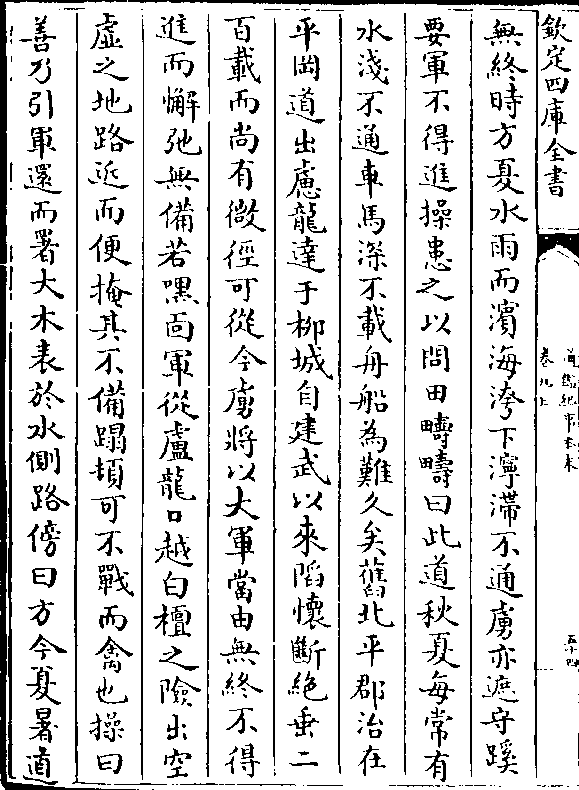 欽定四庫全書
通鑑紀事本末
卷九上
五十四
無終時方夏水雨而濱海洿下濘滯不通虜亦遮守蹊
要軍不得進操患之以問田疇疇曰此道秋夏每常有
水淺不通車馬深不載舟船為難久矣舊北平郡治在
平岡道出盧龍達于柳城自建武以來陷懷斷絶垂二
百載而尚有微徑可從今虜將以大軍當由無終不得
進而懈弛無備若嘿囬軍從盧龍口越白檀之險出空
虛之地路近而便掩其不備蹋頓可不戰而禽也操曰
善乃引軍還而署大木表於水側路傍曰方今夏暑道